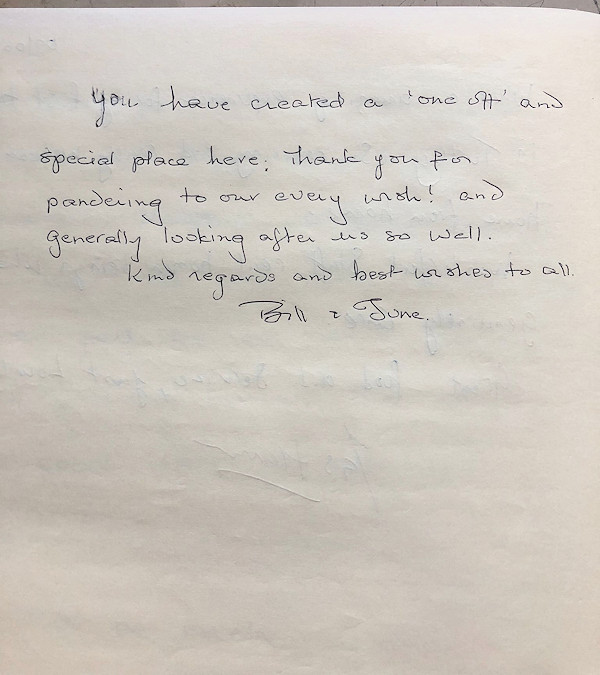 You have created a 'one off' and
special place here; Thank you for
pandering to our every wish! and
generally looking after us so well.
Kind regards and best wishes to all.
Bill & June.